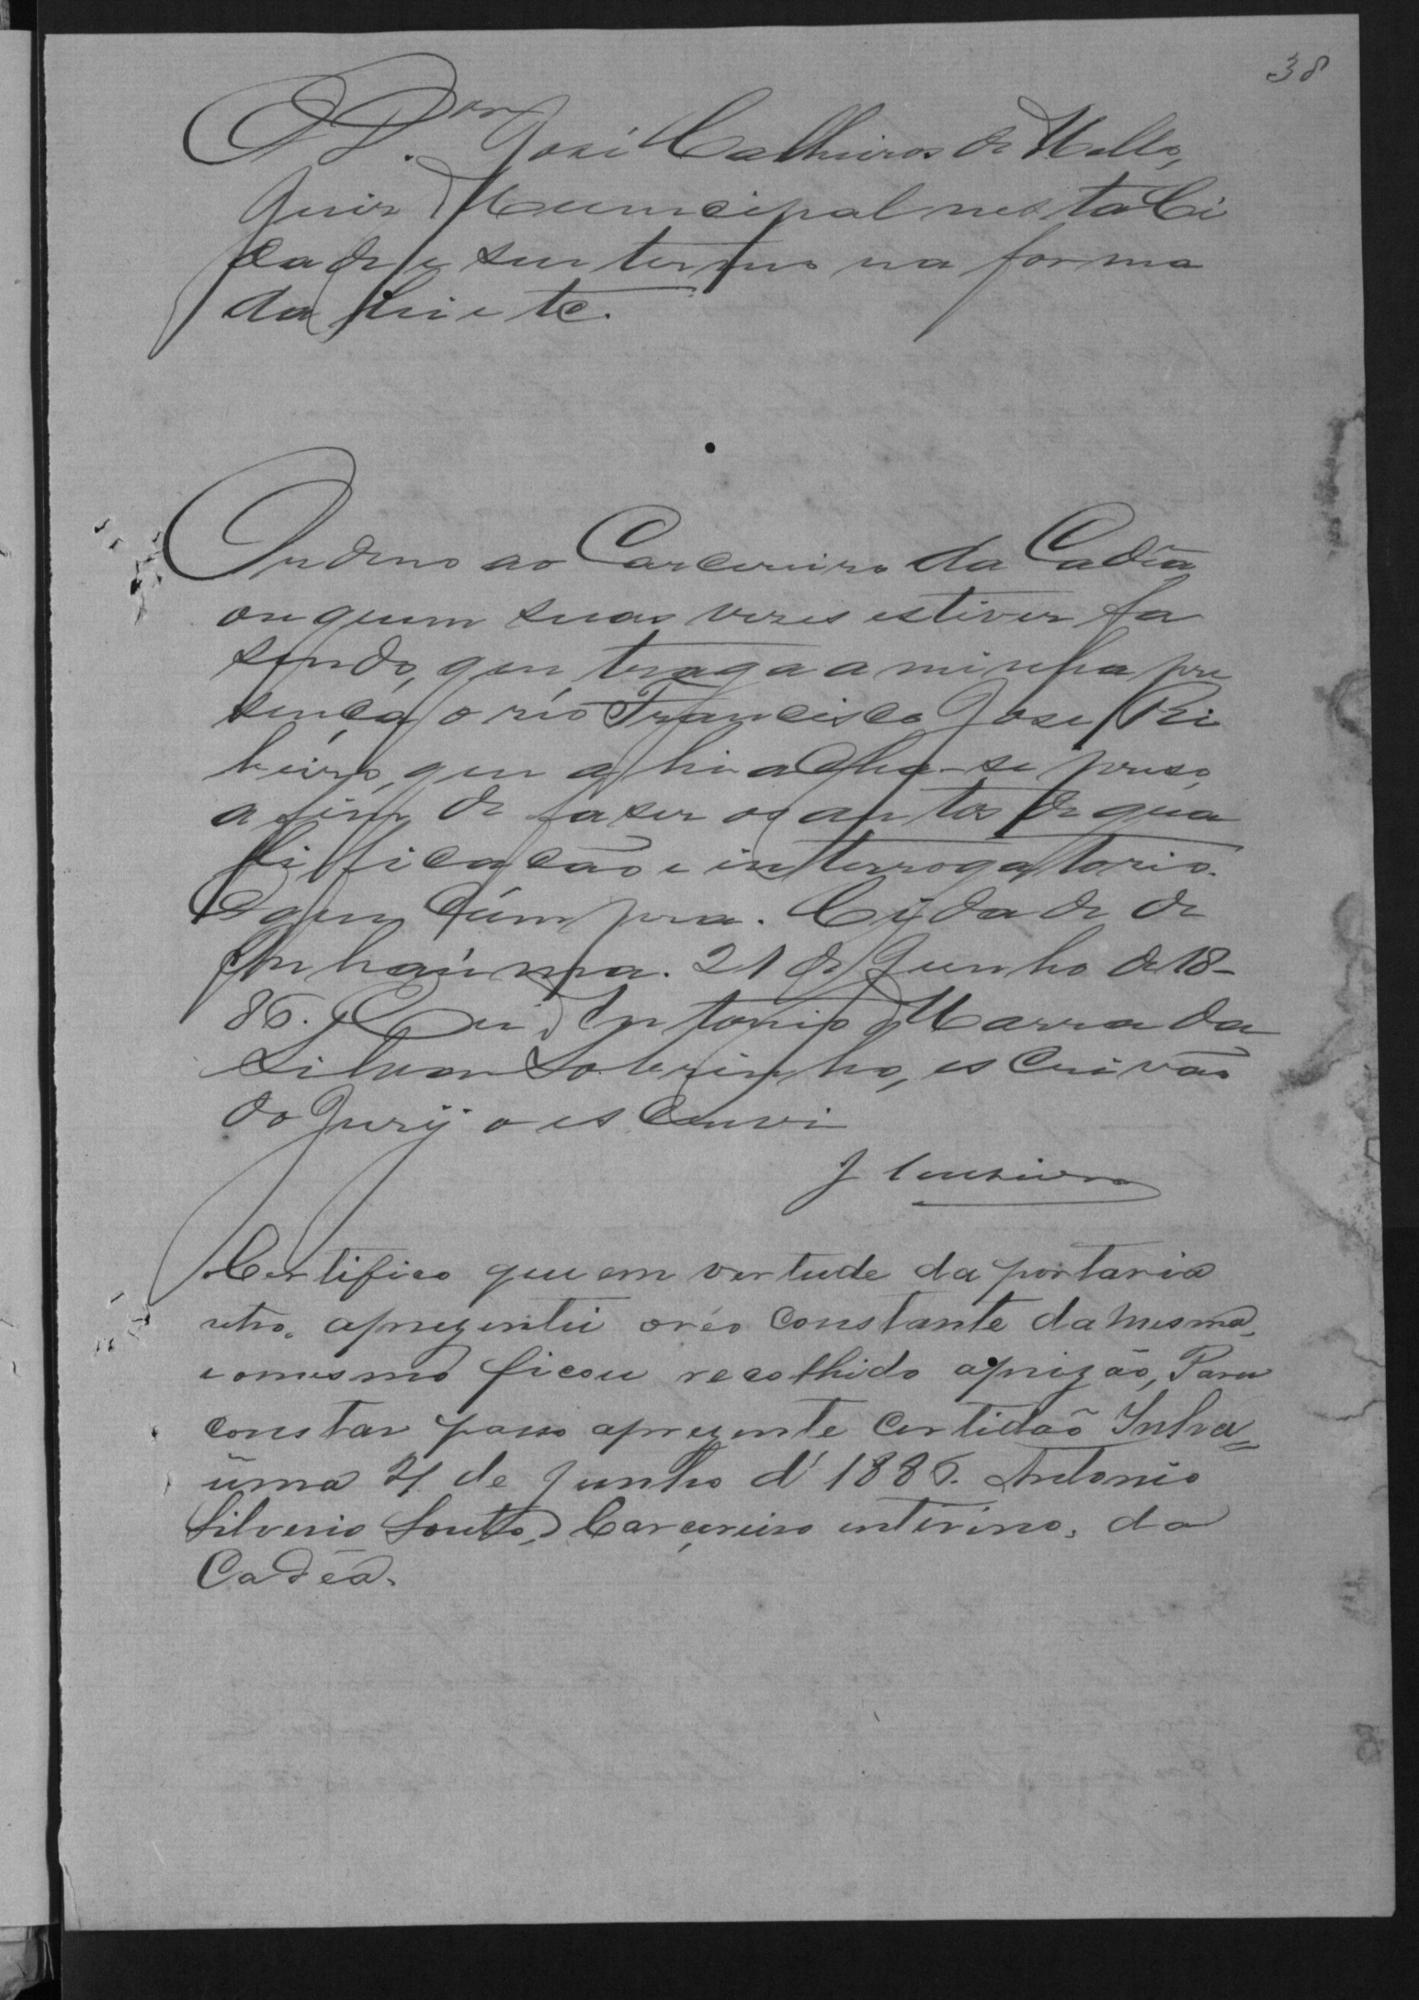 38
O D.or José Calheiros de Mello,
Juiz Municipal nesta Ci
dade e seu termo na forma
da Lei etc.
Ordeno ao Carcereiro da Cadêa
ou quem suas vezes estiver fa
sendo, que traga a minha pre
sença o réo Francisco José Ri
beiro, que ahi acha-se preso,
afim de faser os autos de qua
lificação e interrogatorio.
O que cúmpra. Cidade de
Inhaúma. 21 de Junho de 18-
86. Eu Antonio Marra da
Silva Sobrinho, escrivão
do Jury o escrevi
Certifico que em vertude da portaria
retro, aprezentei o réo constante da mesma,
e o mesmo ficou recolhido a prizão, Para
constar passo a prezente certidão Inha=
úma 21 de Junho d' 1886. Antonio
Silverio Souto, Carçereiro interino, da
Cadêa.